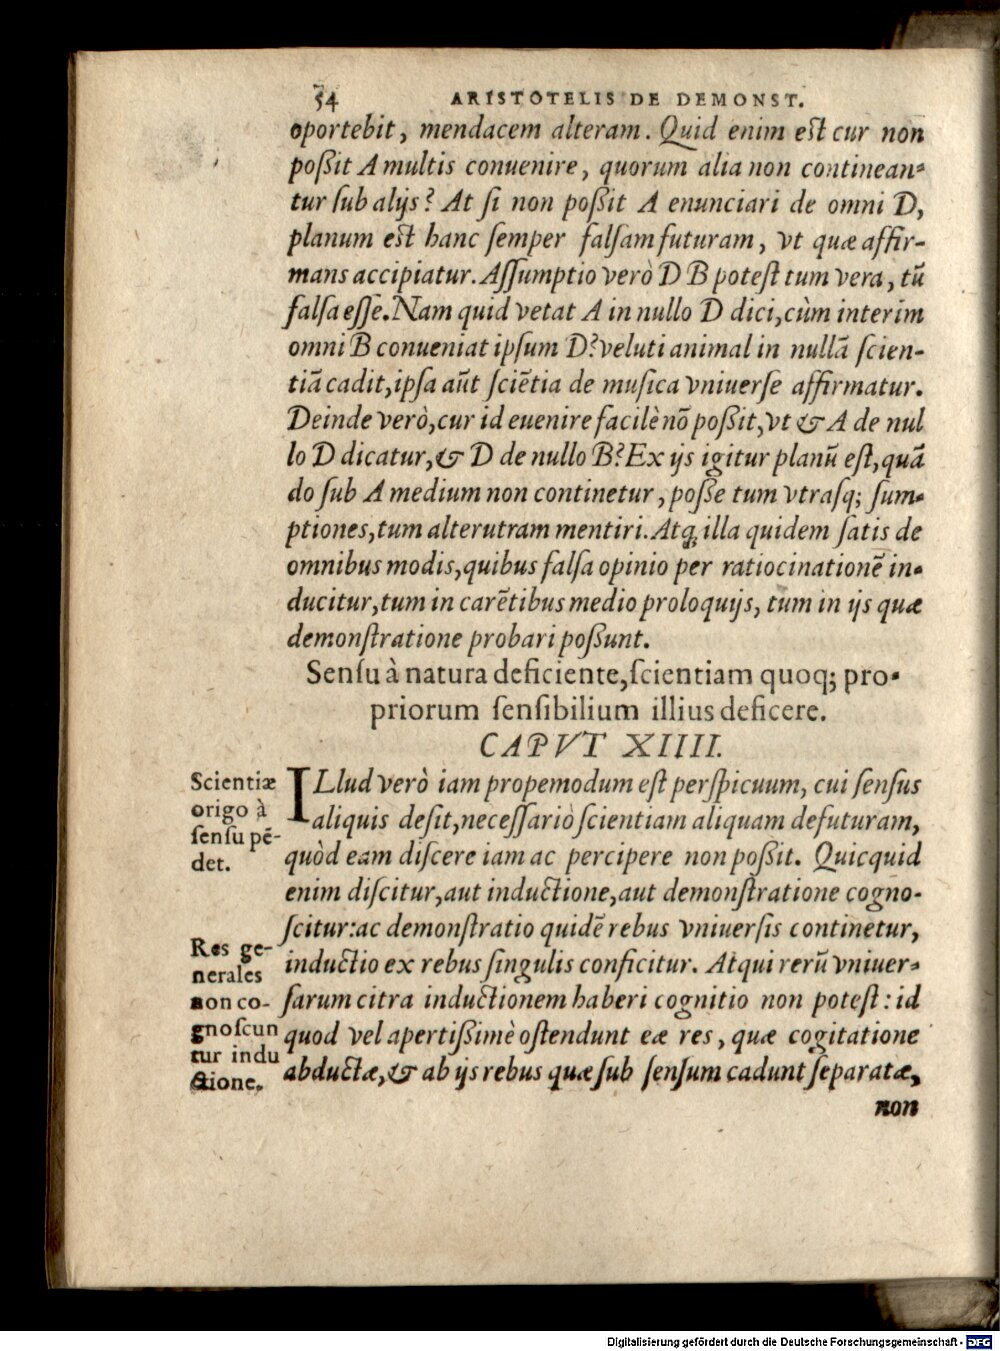 54 ARISTOTELIS DE DEMONST.
oportebit, mendacem alteram. Quid enim est cur non
poßit A multis conuenire, quorum alia non continean-
tur ſub alijs? At ſi non poßit A enunciari de omni D,
planum est hanc ſemper falſam futuram, vt quæ affir-
mans accipiatur. Aſſumptio verò D B poteſt tum vera, tū
falſa eſſe. Nam quid vetat A in nullo D dici, cùm interim
omni B conueniat ipſum D? veluti animal in nullā ſcien-
tiā cadit, ipſa aūt ſciētia de muſica vniuerſe affirmatur.
Deinde verò, cur id euenire facilè nō poßit, vt & A de nul
lo D dicatur, & D de nullo B? Ex ijs igitur planū eſt, quā
do ſub A medium non continetur, poſſe tum vtraſq; ſum-
ptiones, tum alterutram mentiri. Atq; illa quidem ſatis de
omnibus modis, quibus falſa opinio per ratiocinationē in-
ducitur, tum in carētibus medio proloquijs, tum in ijs quæ
demonſtratione probari poßunt.
Senſu à natura deficiente, ſcientiam quoq; pro-
priorum ſenſibilium illius deficere.
CAPVT XIIII.
Scientiæ
origo à
ſenſu pē-
det.
ILlud verò iam propemodum eſt perſpicuum, cui ſenſus
aliquis deſit, neceſſariò ſcientiam aliquam defuturam,
quòd eam diſcere iam ac percipere non poßit. Quicquid
enim diſcitur, aut inductione, aut demonſtratione cogno-
ſcitur: ac demonſtratio quidē rebus vniuerſis continetur,
Res ge-
nerales
non co-
gnoſcun
tur indu
ctione.
inductio ex rebus ſingulis conficitur. Atqui rerū vniuer-
ſarum citra inductionem haberi cognitio non poteſt: id
quod vel apertißimè oſtendunt eæ res, quæ cogitatione
abductæ, & ab ijs rebus quæ ſub ſenſum cadunt ſeparatæ,
non
Digitalisierung gefördert durch die Deutsche Forschungsgemeinschaft - DFG